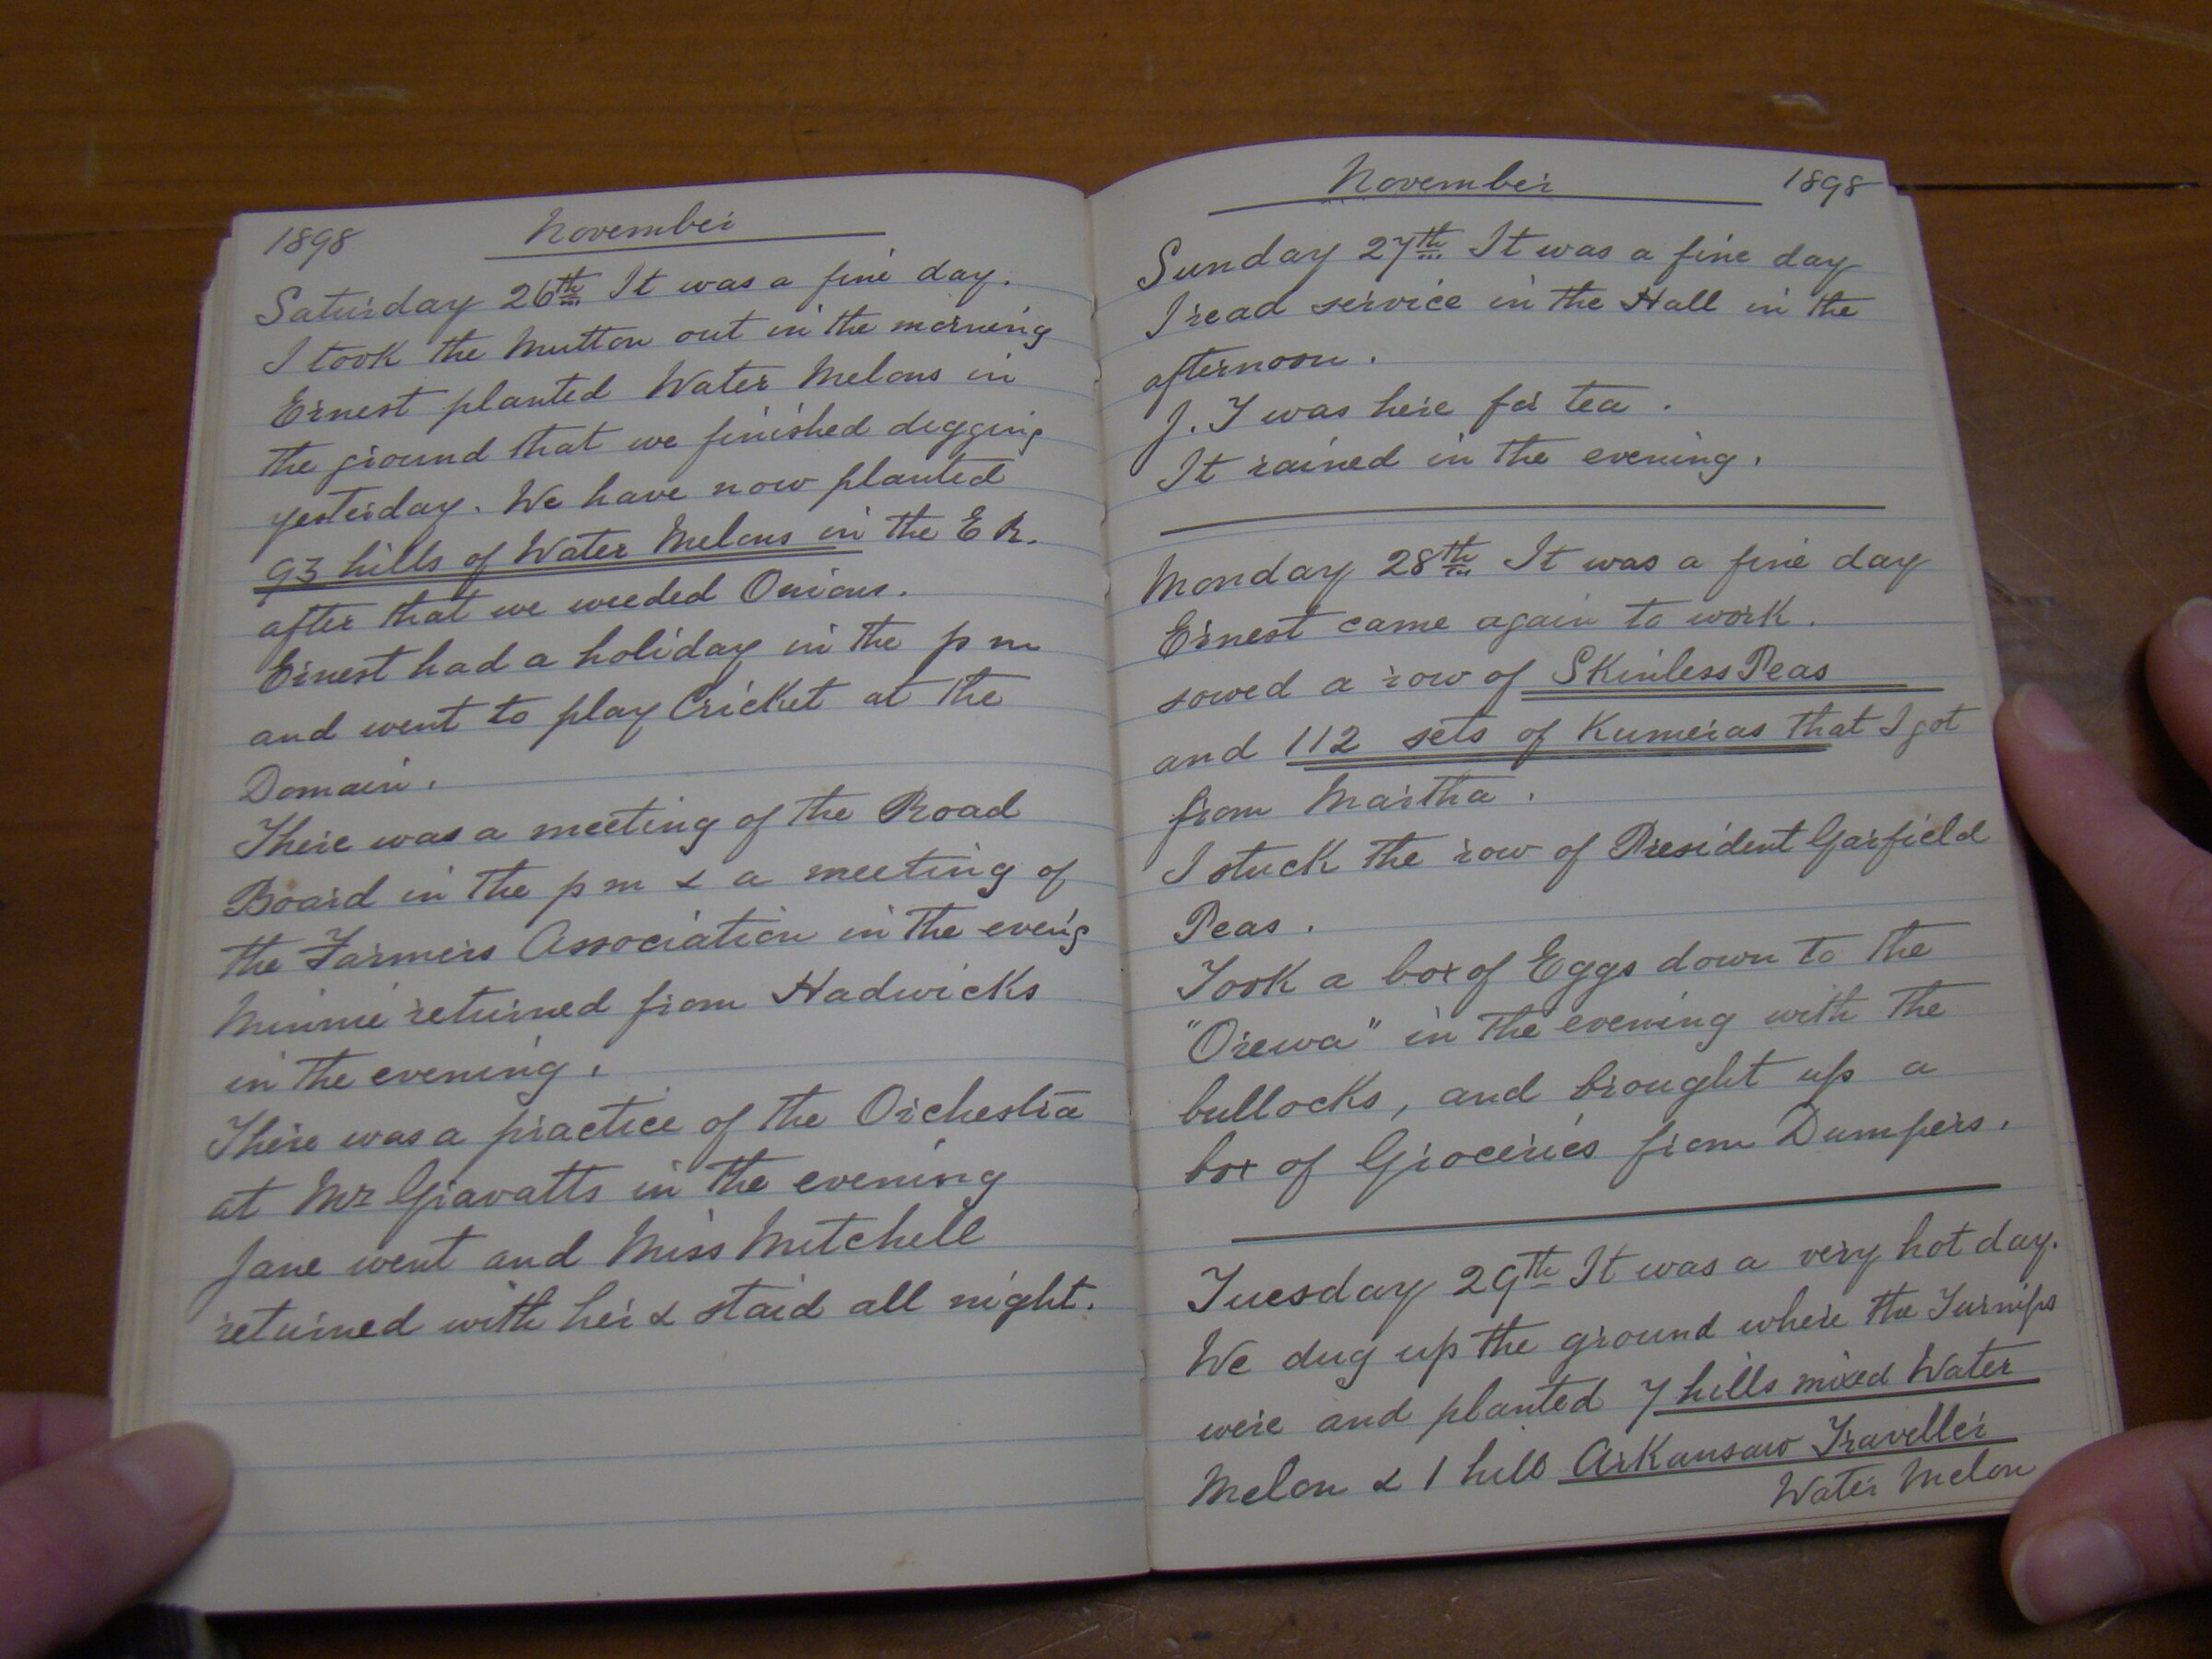 1898 November
Saturday 26th It was a fine day.
I took the Mutton out in the morning
Ernest planted Water Melons in
the ground that we finished digging
yesterday. We have now planted
93 hills of Water Melons in the E R.
after that we weeded Onions.
Ernest had a holiday in the p m
and went to play Cricket at the
Domain.
There was a meeting of the Road
Board in the p m & a meeting of
the Farmers Association in the eveng
Minnie returned from Hadwicks
in the evening.
There was a practice of the Orchestra
at Mr Gravatts in the evening
Jane went and Miss Mitchell
returned with her & staid all night.
November 1898
Sunday 27th It was a fine day
I read service in the Hall in the
afternoon.
J. T was here for tea.
It rained in the evening.
Monday 28th It was a fine day
Ernest came again to work.
sowed a row of Skinless Peas
and 112 sets of Kumeras that I got
from Martha.
I stuck the row of President Garfield
Peas.
Took a box of Eggs down to the
"Orewa" in the evening with the
bullocks, and brought up a
box of Groceries from Dumpers.
Tuesday 29th It was a very hot day.
We dug up the ground where the Turnips
were and planted 7 hills mixed Water
Melon & 1 hill Arkansaw Traveller
Water Melon